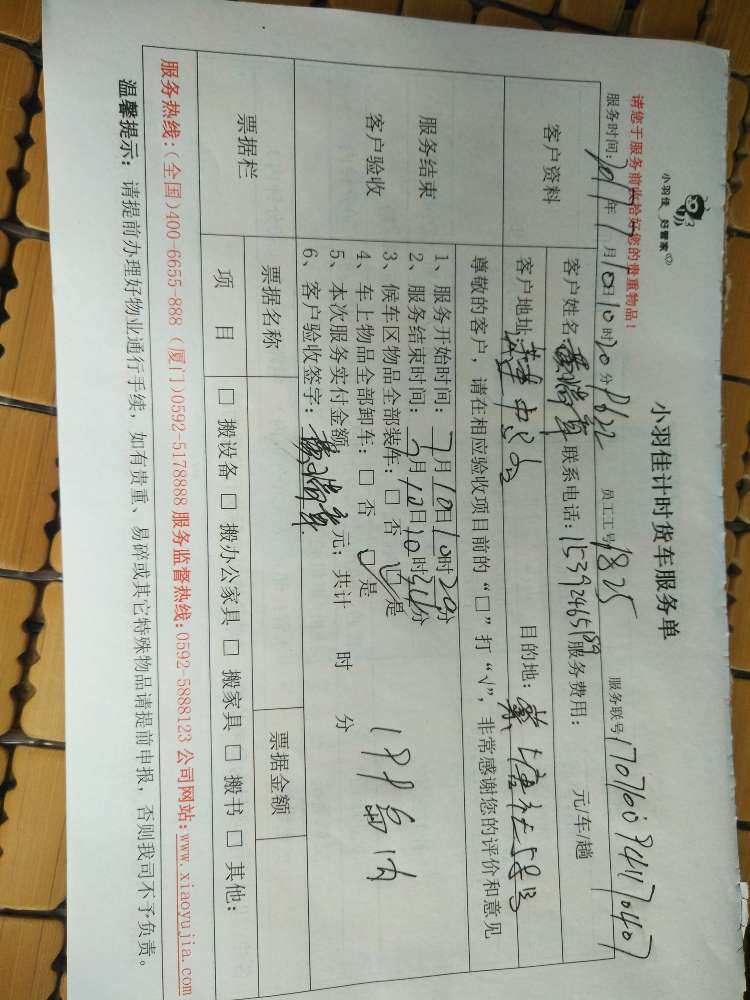 小羽佳 好管家
小羽佳计时货车服务单
请您于服务前收拾好您的贵重物品！
服务时间: 年7月10日10时20分 员工工号1825 服务联号
客户资料
客户姓名 联系电话: 服务费用: 元/车/趟
客户地址: 目的地:
尊敬的客户，请在相应验收项目前的“□”打“√”，非常感谢您的评价和意见
服务结束
客户验收
1、服务开始时间: 7月10日10时20分
2、服务结束时间: 7月10日10时 分
3、候车区物品全部装车: □ 否 □ 是
4、车上物品全部卸车: □ 否 □ 是
5、本次服务实付金额 元; 共计 时 分
6、客户验收签字:
票据栏
票据名称 票据金额
项 目 □ 搬设备 □ 搬办公家具 □ 搬家具 □ 搬书 □ 其他:
服务热线:(全国)400-6655-888 (厦门)0592-5178888 服务监督热线:0592-5888123 公司网站:www.xiaoyujia.com
温馨提示: 请提前办理好物业通行手续, 如有贵重、易碎或其它特殊物品请提前申报, 否则我司不予负责。